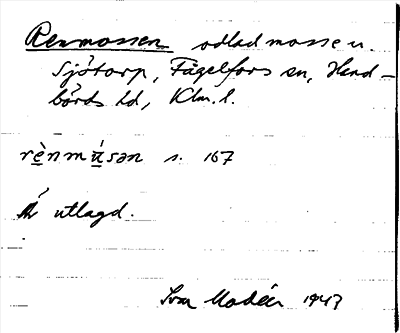 Renmossen odlad mosse u.
Sjötorp, Fågelfors sn, Hand-
börds hd, Klm. l.
rènmɷ́sən s. 167
Är utlagd.
Ivar Modéer 1943